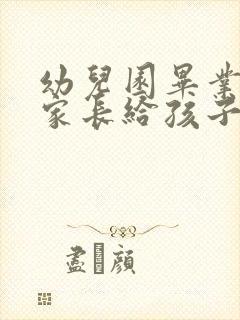 幼兒園畢業
家長給孩子
盡 顔